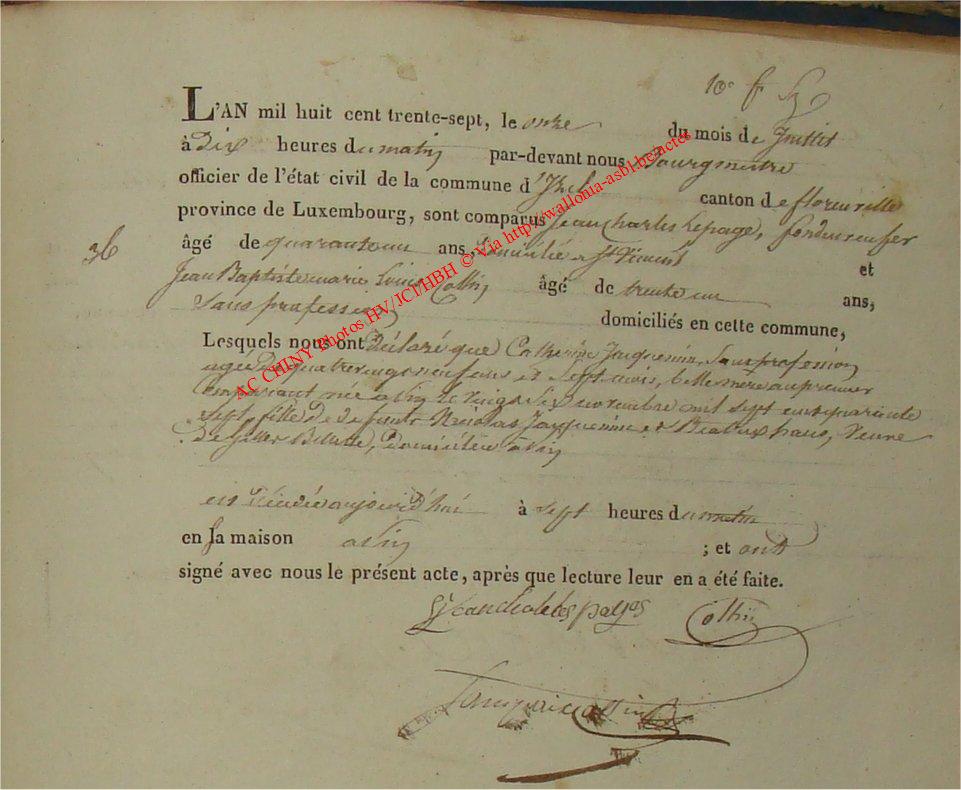 10e f
L'AN mil huit cent trente-sept, le onze du mois de Juillet
à Dix heures du matin par-devant nous Bourgmestre
officier de l'état civil de la commune d'Izel canton de florenville
province de Luxembourg, sont comparus Jean Charles Lepage, fondeur en fer
36
âgé de quarante un ans, Domicilié a St Vincent et
Jean Baptiste marie Louis Collin âgé de trente un ans,
Sans profession domiciliés en cette commune,
Lesquels nous ont Déclaré que Catherine Jacquemin, Sans profession
agée De quatre vingt neuf ans et Sept mois, belle mere au premier
Comparant née a le vingt Six novembre mil sept cent quarante
sept, fille De defunt Nicolas Jacquemin et Veuve
De Domiciliée
est Décédée aujourd'hui à sept heures du matin
en Sa maison ; et ont
signé avec nous le présent acte, après que lecture leur en a été faite.
Collin
AC CHINY Photos HV/JCPHBH © Via http://wallonia-asbl.be/actes